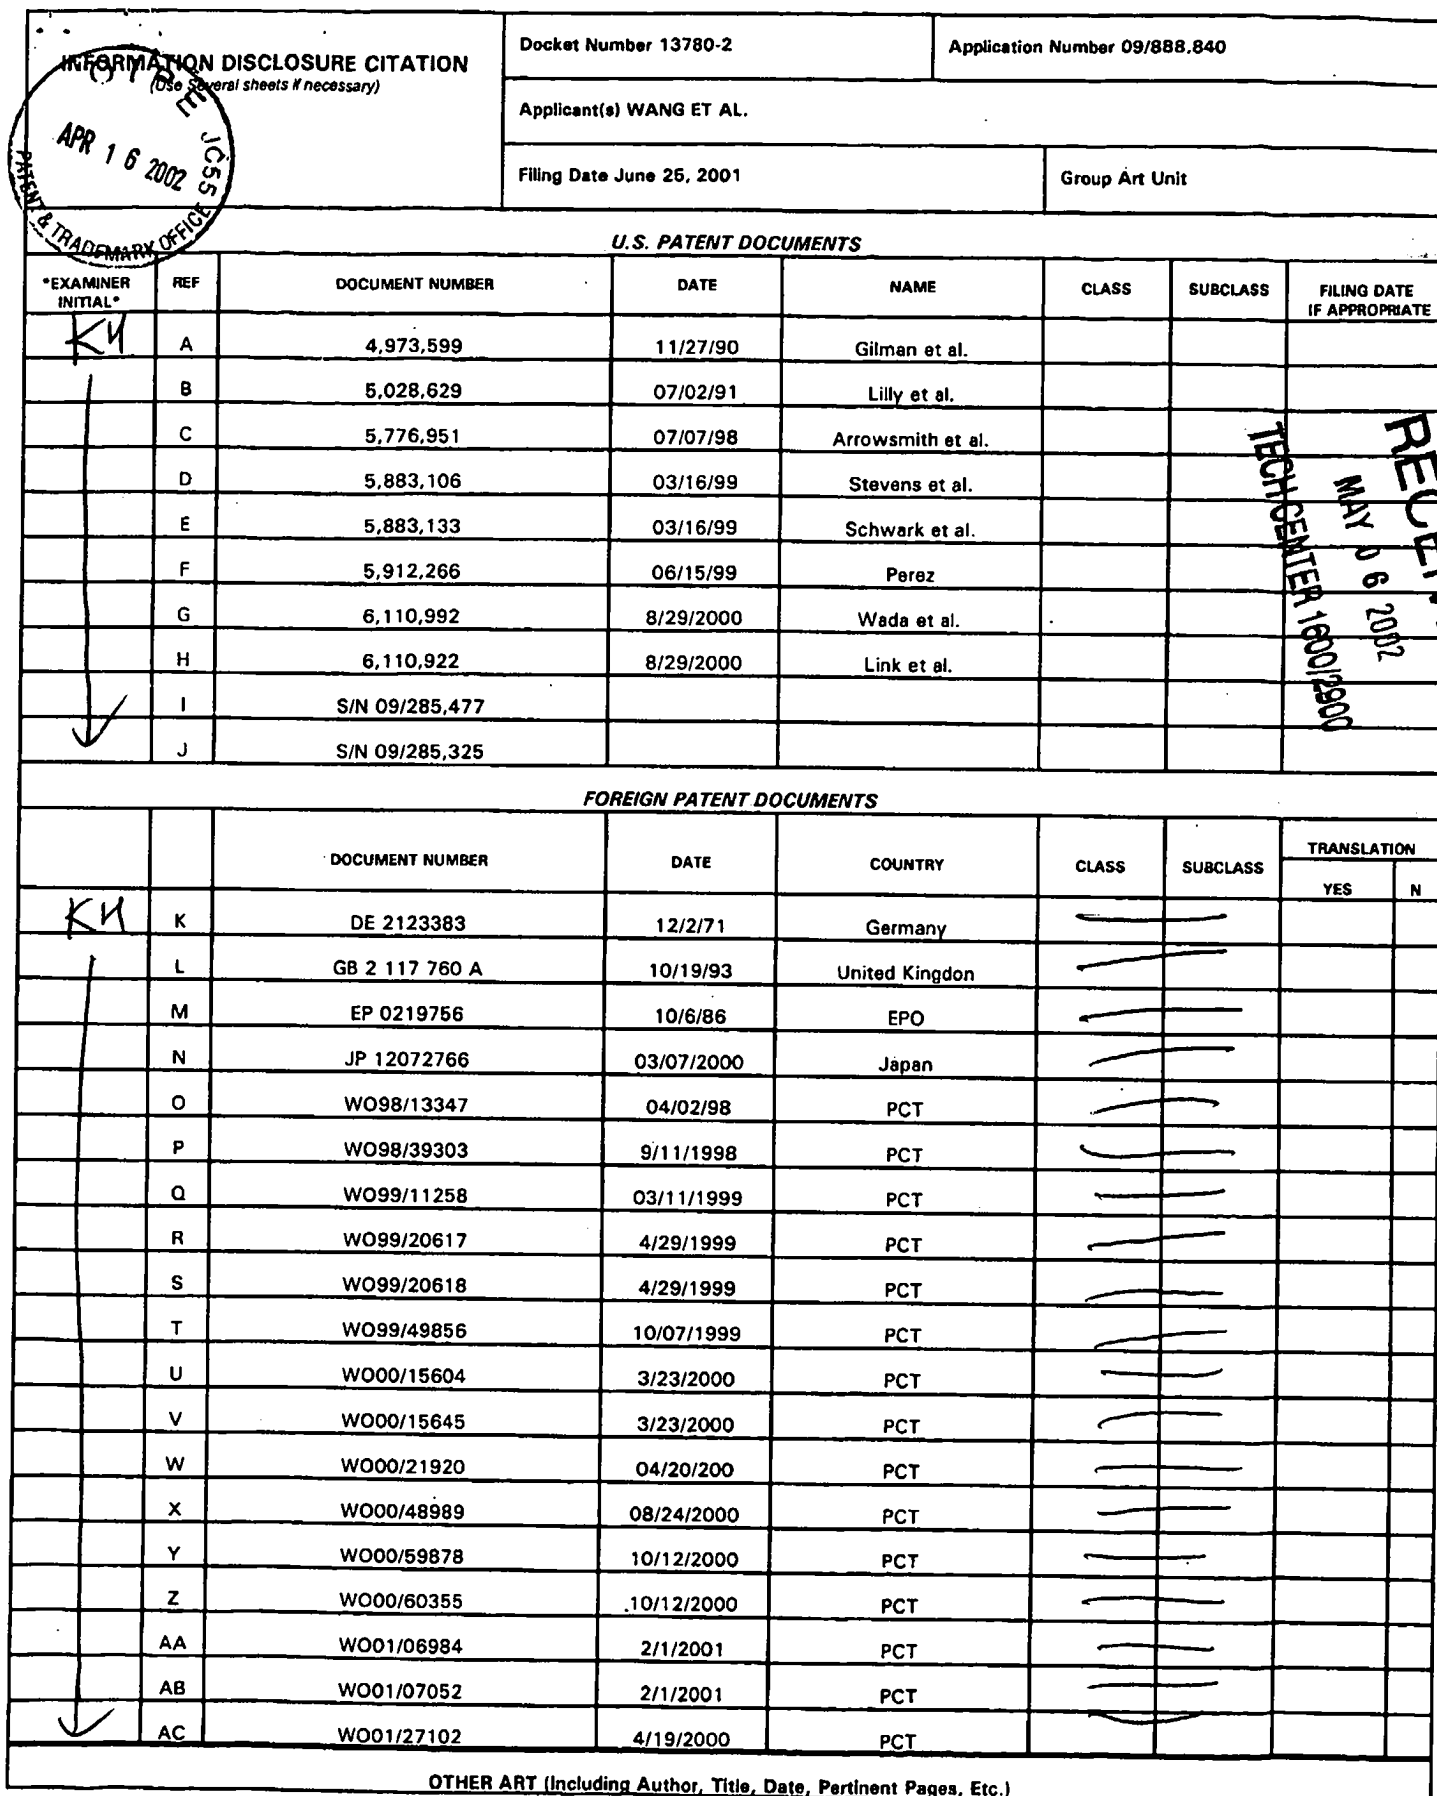 INFORMATION DISCLOSURE CITATION
(Use Several sheets if necessary)
Docket Number 13780-2
Application Number 09/888,840
Applicant(s) WANG ET AL.
Filing Date June 25, 2001
Group Art Unit
O I P E JC55
APR 1 6 2002
PATENT & TRADEMARK OFFICE
U.S. PATENT DOCUMENTS
*EXAMINER INITIAL* REF DOCUMENT NUMBER DATE NAME CLASS SUBCLASS FILING DATE IF APPROPRIATE
KH A 4,973,599 11/27/90 Gilman et al.
B 5,028,629 07/02/91 Lilly et al.
C 5,776,951 07/07/98 Arrowsmith et al.
D 5,883,106 03/16/99 Stevens et al.
E 5,883,133 03/16/99 Schwark et al.
F 5,912,266 06/15/99 Perez
G 6,110,992 8/29/2000 Wada et al.
H 6,110,922 8/29/2000 Link et al.
I S/N 09/285,477
J S/N 09/285,325
MAY 0 6 2002
TECH CENTER 1600/2900
FOREIGN PATENT DOCUMENTS
DOCUMENT NUMBER DATE COUNTRY CLASS SUBCLASS TRANSLATION
YES N
KH K DE 2123383 12/2/71 Germany
L GB 2 117 760 A 10/19/93 United Kingdon
M EP 0219756 10/6/86 EPO
N JP 12072766 03/07/2000 Japan
O WO98/13347 04/02/98 PCT
P WO98/39303 9/11/1998 PCT
Q WO99/11258 03/11/1999 PCT
R WO99/20617 4/29/1999 PCT
S WO99/20618 4/29/1999 PCT
T WO99/49856 10/07/1999 PCT
U WO00/15604 3/23/2000 PCT
V WO00/15645 3/23/2000 PCT
W WO00/21920 04/20/200 PCT
X WO00/48989 08/24/2000 PCT
Y WO00/59878 10/12/2000 PCT
Z WO00/60355 10/12/2000 PCT
AA WO01/06984 2/1/2001 PCT
AB WO01/07052 2/1/2001 PCT
AC WO01/27102 4/19/2000 PCT
OTHER ART (Including Author, Title, Date, Pertinent Pages, Etc.)